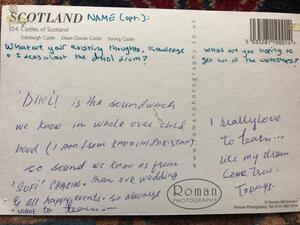 SCOTLAND
554. Castles of Scotland
Edinburgh Castle Eilean Donan Castle Stirling Castle
NAME (opt.):
5 035281 100014
What are your existing thoughts, knowledge
+ ideas about the dhol drum?
what are you hoping to
get out of the workshops?
'DHOL! is the sound which
we know in whole over child
hood (I AM from KARACHI, PAKISTAN)
so sound we know as from
'SOFI' SHARIN. Then our wedding
& all happy events. so always
want to learn —
I really love
to learn —
like my dream
come true.
Todays.
www.romanphotography.co.uk
Roman
PHOTOGRAPHY